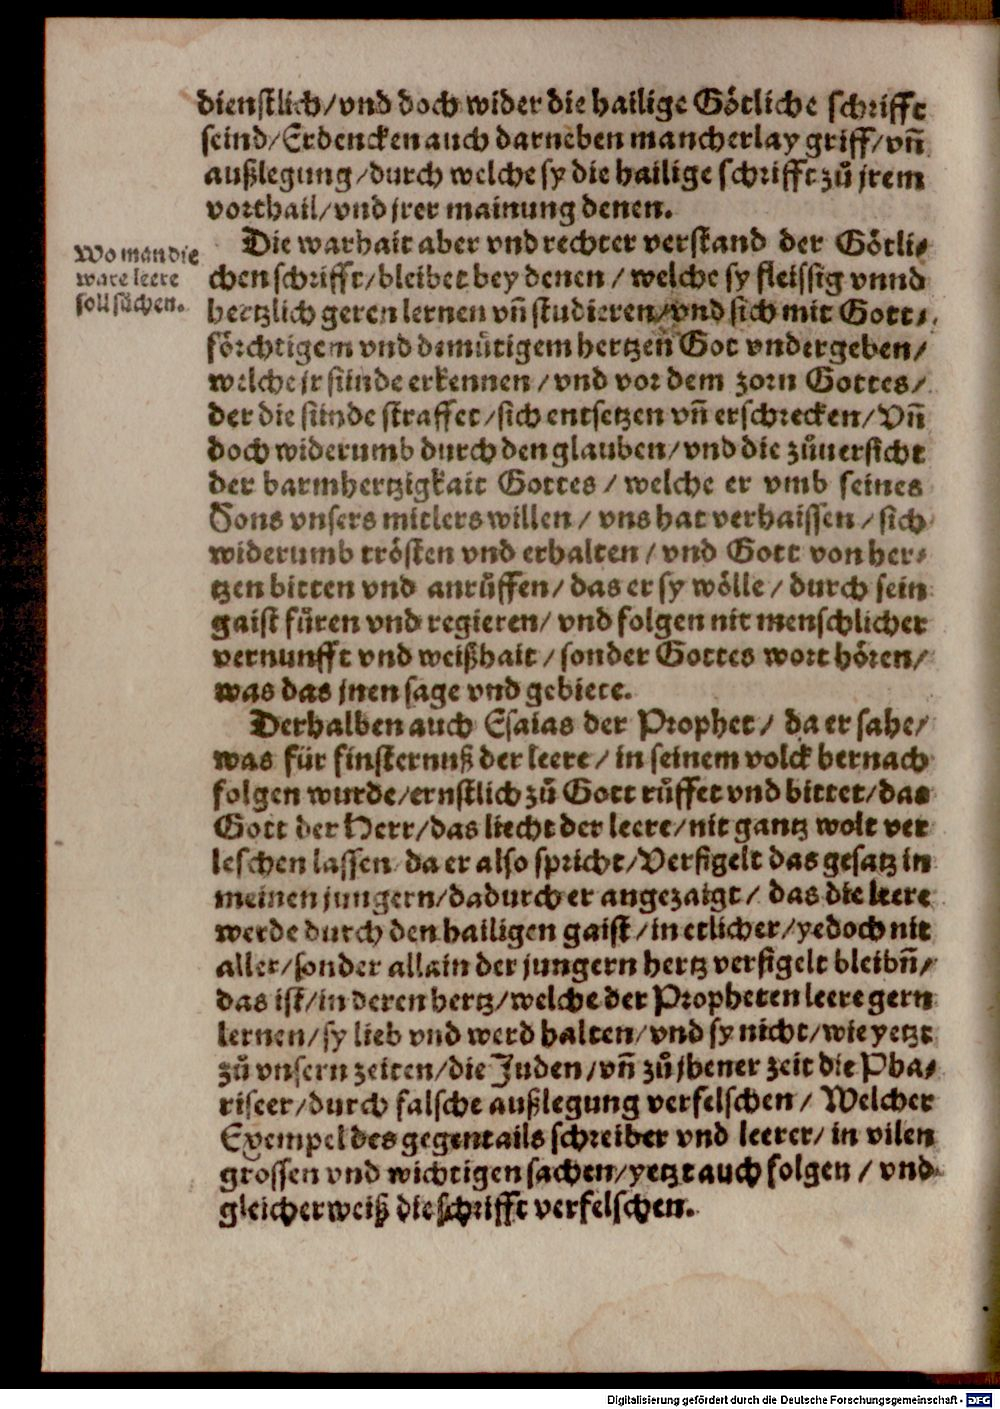 dienstlich/vnd doch wider die hailige Götliche schrifft
seind/Erdencken auch darneben mancherlay griff/vñ
außlegung/durch welche sy die hailige schrifft zů jrem
vorthail/vnd jrer mainung denen.
Die warhait aber vnd rechter verstand der Götli⸗
Wo man die
ware leere
soll sůchen.
chen schrifft/bleibet bey denen/welche sy fleissig vnnd
hertzlich geren lernen vñ studieren/vnd sich mit Gott⸗
förchtigem vnd demůtigem hertzen Got vndergeben/
welche jr sünde erkennen/vnd vor dem zorn Gottes/
der die sünde straffet/sich entsetzen vñ erschrecken/Vñ
doch widerumb durch den glauben/vnd die zůuersicht
der barmhertzigkait Gottes/welche er vmb seines
Sons vnsers mitlers willen/vns hat verhaissen/sich
widerumb trösten vnd erhalten/vnd Gott von her⸗
tzen bitten vnd anrůffen/das er sy wölle/durch sein
gaist füren vnd regieren/vnd folgen nit menschlicher
vernunfft vnd weißhait/sonder Gottes wort hören/
was das jnen sage vnd gebiete.
Derhalben auch Esaias der Prophet/da er sahe/
was für finsternuß der leere/in seinem volck hernach
folgen wurde/ernstlich zů Gott růffet vnd bittet/das
Gott der Herr/das liecht der leere/nit gantz wolt ver
leschen lassen da er also spricht/Versigelt das gesatz in
meinen jungern/dadurch er angezaigt/das die leere
werde durch den hailigen gaist/in etlicher/yedoch nit
aller/sonder allain der jungern hertz versigelt bleibñ/
das ist/in deren hertz/welche der Propheten leere gern
lernen/sy lieb vnd werd halten/vnd sy nicht/wie yetzt
zů vnsern zeiten/die Juden/vñ zů jhener zeit die Pha⸗
riseer/durch falsche außlegung verfelschen/Welcher
Exempel des gegentails schreiber vnd leerer/in vilen
grossen vnd wichtigen sachen/yetzt auch folgen/vnd
gleicherweiß die schrifft verfelschen.
Digitalisierung gefördert durch die Deutsche Forschungsgemeinschaft - DFG